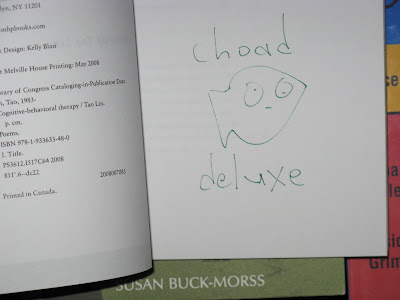 lyn, NY 11201
mhpbooks.com
Design: Kelly Blair
Melville House Printing: May 2008
brary of Congress Cataloging-in-Publication Data
n, Tao, 1983-
Cognitive-behavioral therapy / Tao Lin.
p. cm.
Poems.
ISBN 978-1-933633-48-0
1. Title.
PS3612.I517C64 2008
811'.6--dc22
2008007883
Printed in Canada.
choad
deluxe
SUSAN BUCK-MORSS